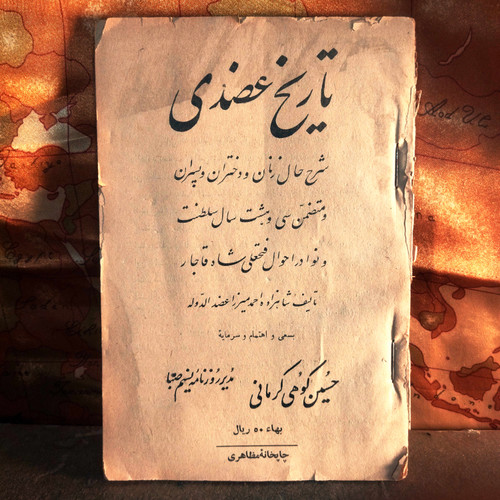 تاریخ عضدی
شرح حال زنان و دختران و پسران
و متضمن سی و هشت سال سلطنت
و نوادر احوال فتحعلی شاه قاجار
تألیف شاهزاده احمد میرزا عضدالدوله
بسعی و اهتمام و سرمایهٔ
حسین کوهی کرمانی مدیر روزنامه نسیم صبا
بهاء ۵۰ ریال
چاپخانهٔ مظاهری